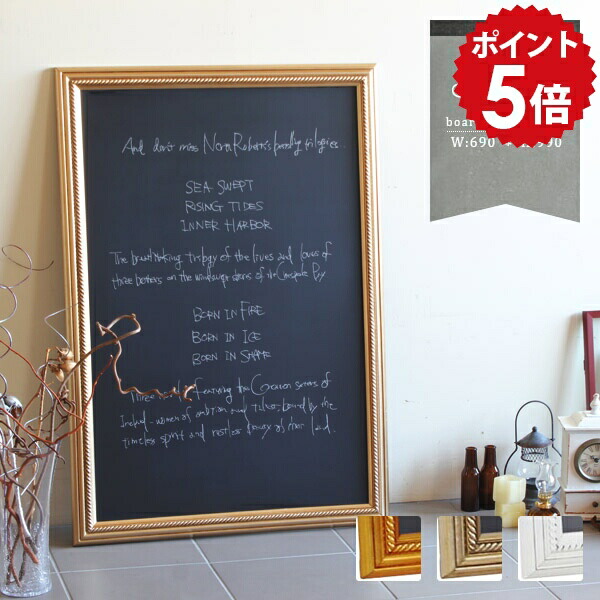 ポイント
5倍
boar
W:690
And don't miss Nora Roberts's bestselling trilogies...
SEA SWEPT
RISING TIDES
INNER HARBOR
The breathtaking trilogy of the lives and loves of
three brothers on the windswept shores of the Chesapeake Bay
BORN IN FIRE
BORN IN ICE
BORN IN SHAME
Three featuring the Concannon sisters of
Ireland - women of ambition and talent bound by the
timeless spirit and restless beauty of their land.